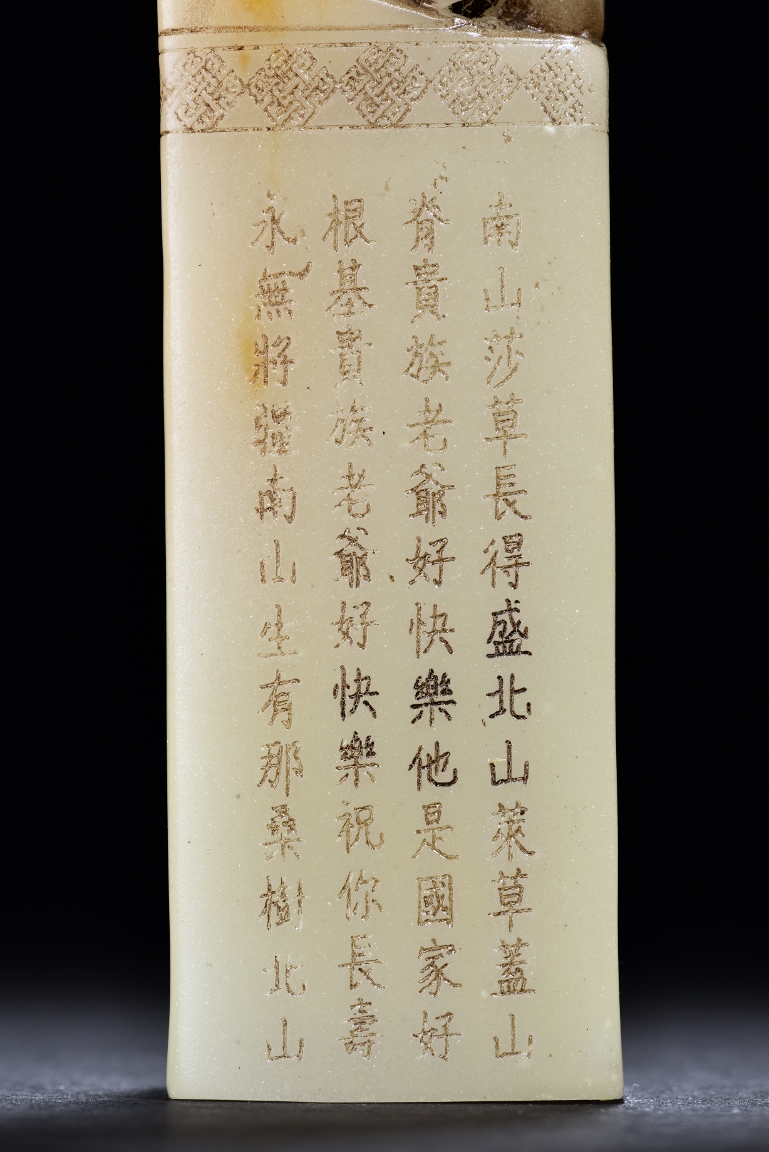 南山莎草長得盛北山萊草蓋山
脊貴族老爺好快樂他是國家好
根基貴族老爺好快樂祝你長壽
永無將疆南山生有那桑樹北山